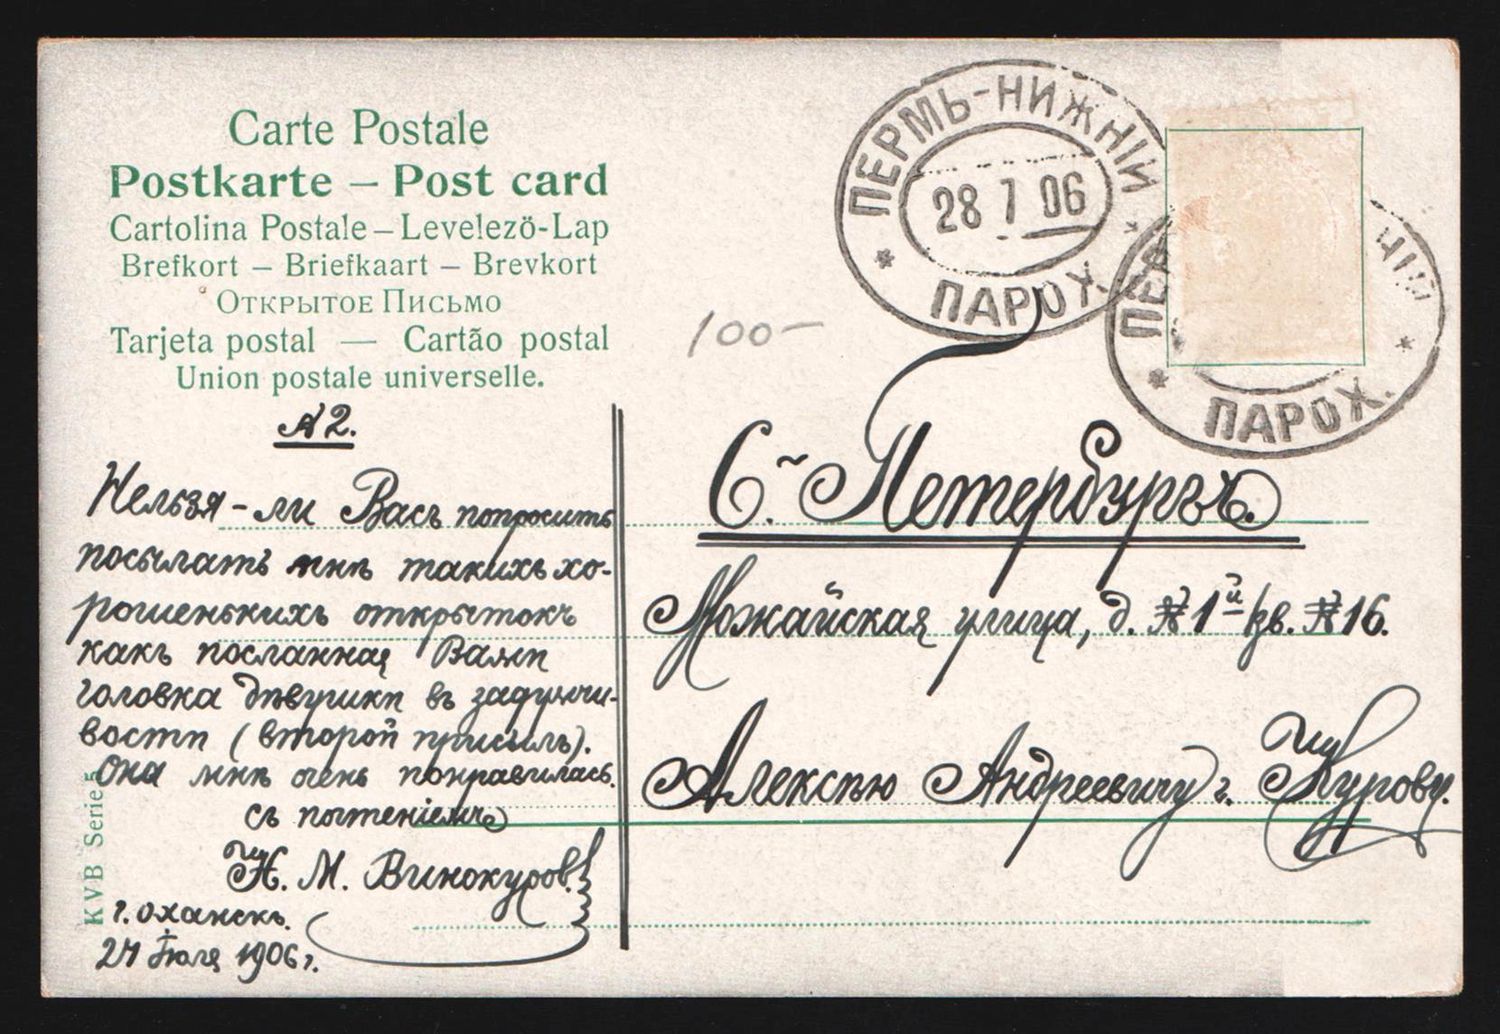 Carte Postale
Postkarte – Post card
Cartolina Postale – Levelezö-Lap
Brefkort – Briefkaart – Brevkort
Открытое Письмо
Tarjeta postal — Cartão postal
Union postale universelle.
ПЕРМЬ-НИЖНІЙ
28 7 06
ПАРОХ.
ПЕР НІЙ
ПАРОХ.
100-
№2.
Нельзя-ли Васъ попросить
посылать мнѣ такихъ хо-
рошенькихъ открытокъ
какъ посланная Вами
головка дѣвушки въ задумчи-
вости (второй присылъ).
Она мнѣ очень понравилась.
съ почтеніемъ
Н. М. Винокуровъ.
г. Оханскъ.
27 Іюля 1906 г.
KVB Serie 5
С. Петербургъ.
Можайская улица, д. №1й кв. №16.
Алексѣю Андреевичу г. Курову.